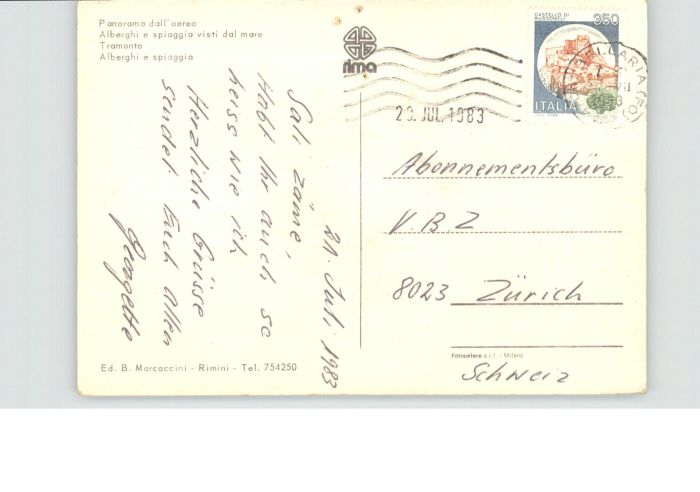 Panorama dall'aereo
Alberghi e spiaggia visti dal mare
Tramonto
Alberghi e spiaggia
rima
CASTELLO DI
350
ITALIA
29. JUL. 1983
21. Juli 1983
Sali zäme,
Habt Ihr auch so
heiss wie ich
Herzliche Grüsse
sendet Euch allen
Georgette
Abonnementsbüro
V.B.Z
8023 Zürich
Schweiz
Fotocelere s.r.l. - Milano
Ed. B. Marcaccini - Rimini - Tel. 754250